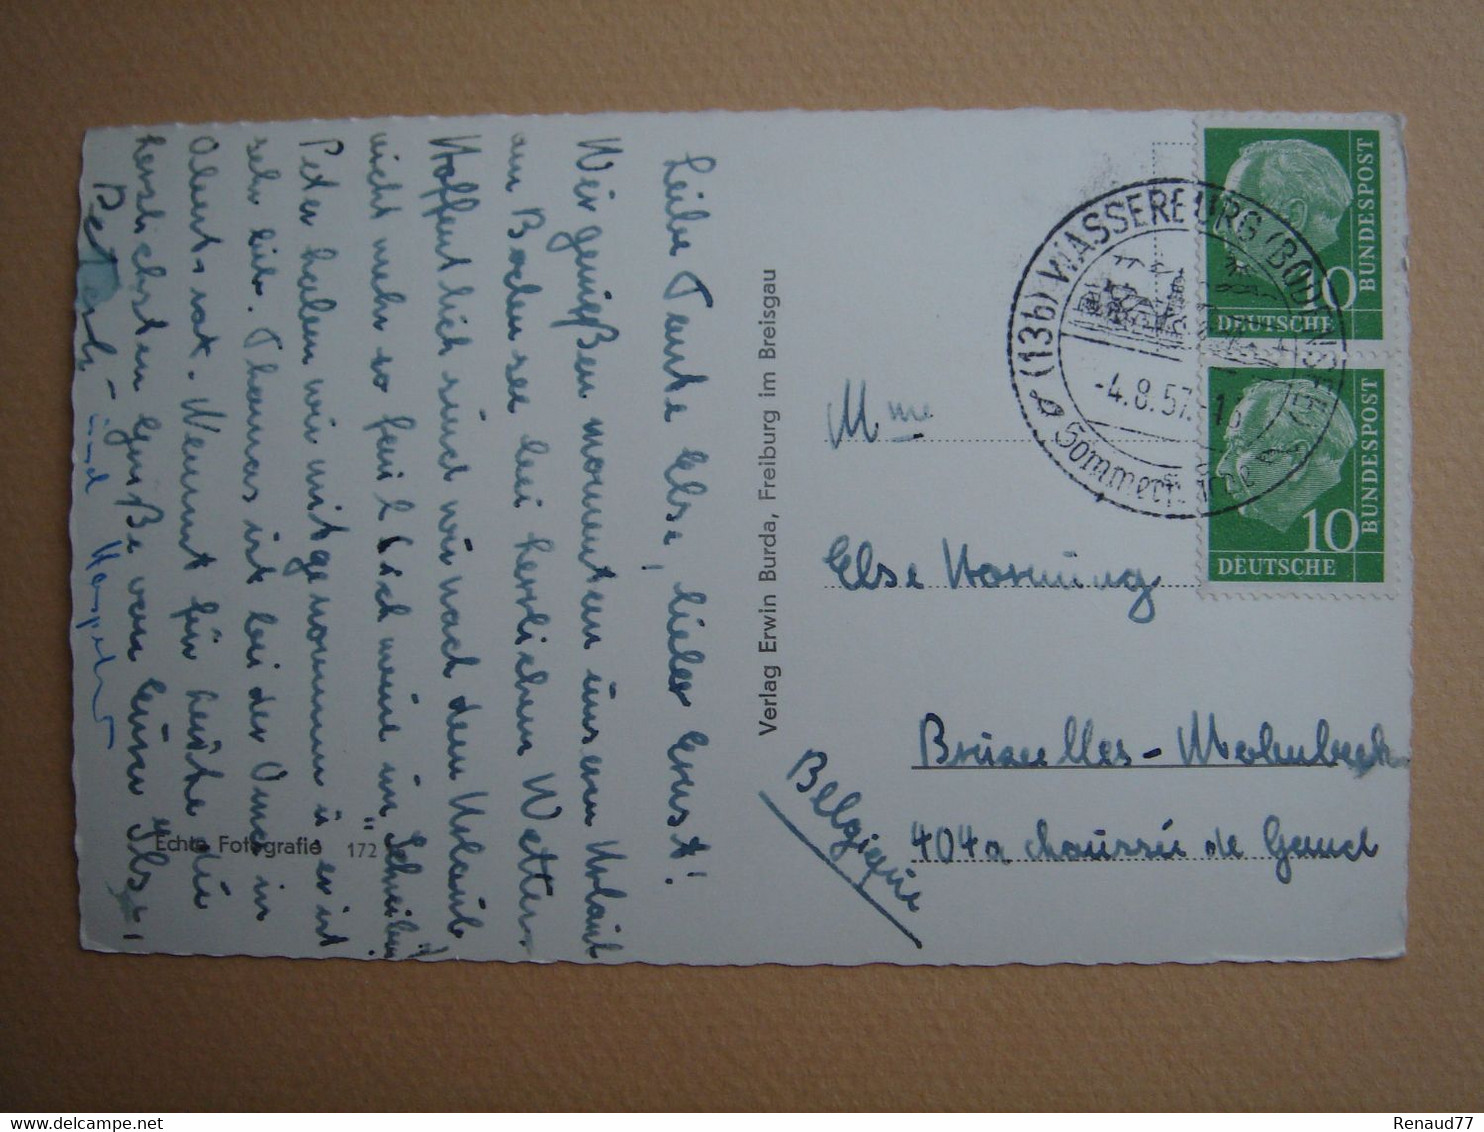 Liebe Tante Else, lieber Ernst!
Wir genießen momentan unseren Urlaub
am Bodensee bei herrlichem Wetter.
Hoffentlich sind wir nach dem Urlaub
nicht mehr so faul (ich meine im "Schreiben")
Peter haben wir mitgenommen u. er ist
sehr lieb. Thomas ist bei der Oma in
Nehmt für heute die
herzlichsten Grüße von Eurer Ilse,
Peterle - und
Echte Fotografie 172
Verlag Erwin Burda, Freiburg im Breisgau
(13b) WASSERBURG (BODENSEE)
-4.8.57.-13
Sommerfrische
DEUTSCHE BUNDESPOST
10
DEUTSCHE BUNDESPOST
10
Mme
Else Hornung
Bruxelles-Molenbeek
404a chaussée de Gand
Belgique
Renaud77